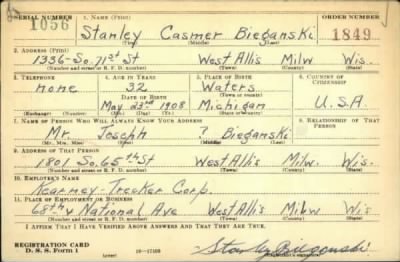 SERIAL NUMBER 1. NAME (Print) ORDER NUMBER
1056 Stanley Casmer Bieganski 1849
(First) (Middle) (Last)
2. ADDRESS (Print)
1336-So. 71st St West Allis Milw Wis.
(Number and street or R. F. D. number) (Town) (County) (State)
3. TELEPHONE 4. AGE IN YEARS 5. PLACE OF BIRTH 6. COUNTRY OF CITIZENSHIP
none 32 Waters
DATE OF BIRTH (Town or county)
May 23rd 1908 Michigan U.S.A.
(Exchange) (Number) (Mo.) (Day) (Yr.) (State or country)
7. NAME OF PERSON WHO WILL ALWAYS KNOW YOUR ADDRESS 8. RELATIONSHIP OF THAT PERSON
Mr. Joseph ? Bieganski
(Mr., Mrs., Miss) (First) (Middle) (Last)
9. ADDRESS OF THAT PERSON
1801 So. 65th St West Allis Milw. Wis.
(Number and street or R. F. D. number) (Town) (County) (State)
10. EMPLOYER'S NAME
Kearney-Trecker Corp.
11. PLACE OF EMPLOYMENT OR BUSINESS
68th & National Ave West Allis Milw Wis
(Number and street or R. F. D. number) (Town) (County) (State)
I AFFIRM THAT I HAVE VERIFIED ABOVE ANSWERS AND THAT THEY ARE TRUE.
REGISTRATION CARD
D. S. S. Form 1 (over) 16—17105 Stanley Bieganski